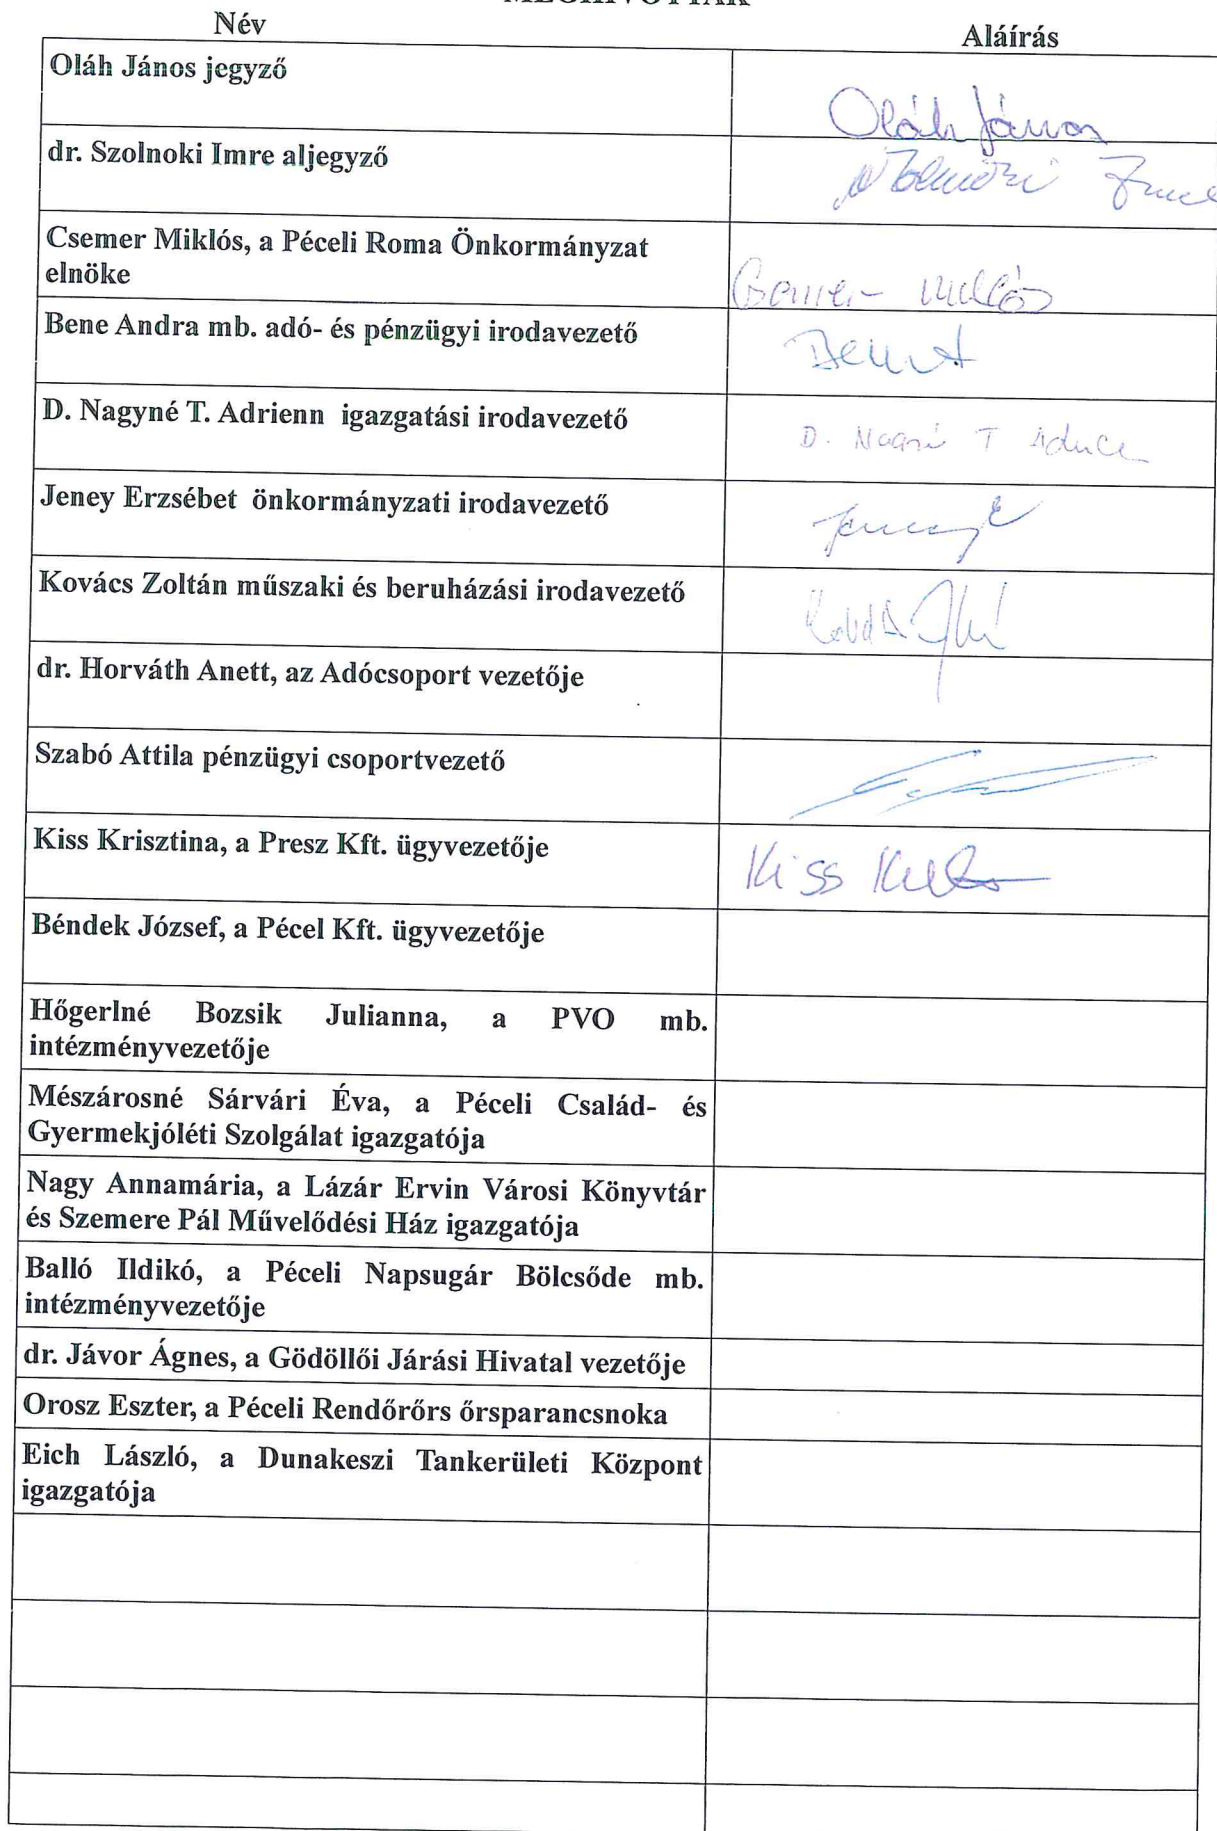 MEGHÍVOTTAK
Név Aláírás
Oláh János jegyző
Oláh János
dr. Szolnoki Imre aljegyző
Szolnoki Imre
Csemer Miklós, a Péceli Roma Önkormányzat
elnöke
Csemer Miklós
Bene Andra mb. adó- és pénzügyi irodavezető
Bene A
D. Nagyné T. Adrienn igazgatási irodavezető
D. Nagyné T Adrienn
Jeney Erzsébet önkormányzati irodavezető
Jeney E
Kovács Zoltán műszaki és beruházási irodavezető
dr. Horváth Anett, az Adócsoport vezetője
Szabó Attila pénzügyi csoportvezető
Kiss Krisztina, a Presz Kft. ügyvezetője
Kiss
Béndek József, a Pécel Kft. ügyvezetője
Hőgerlné Bozsik Julianna, a PVO mb.
intézményvezetője
Mészárosné Sárvári Éva, a Péceli Család- és
Gyermekjóléti Szolgálat igazgatója
Nagy Annamária, a Lázár Ervin Városi Könyvtár
és Szemere Pál Művelődési Ház igazgatója
Balló Ildikó, a Péceli Napsugár Bölcsőde mb.
intézményvezetője
dr. Jávor Ágnes, a Gödöllői Járási Hivatal vezetője
Orosz Eszter, a Péceli Rendőrőrs őrsparancsnoka
Eich László, a Dunakeszi Tankerületi Központ
igazgatója